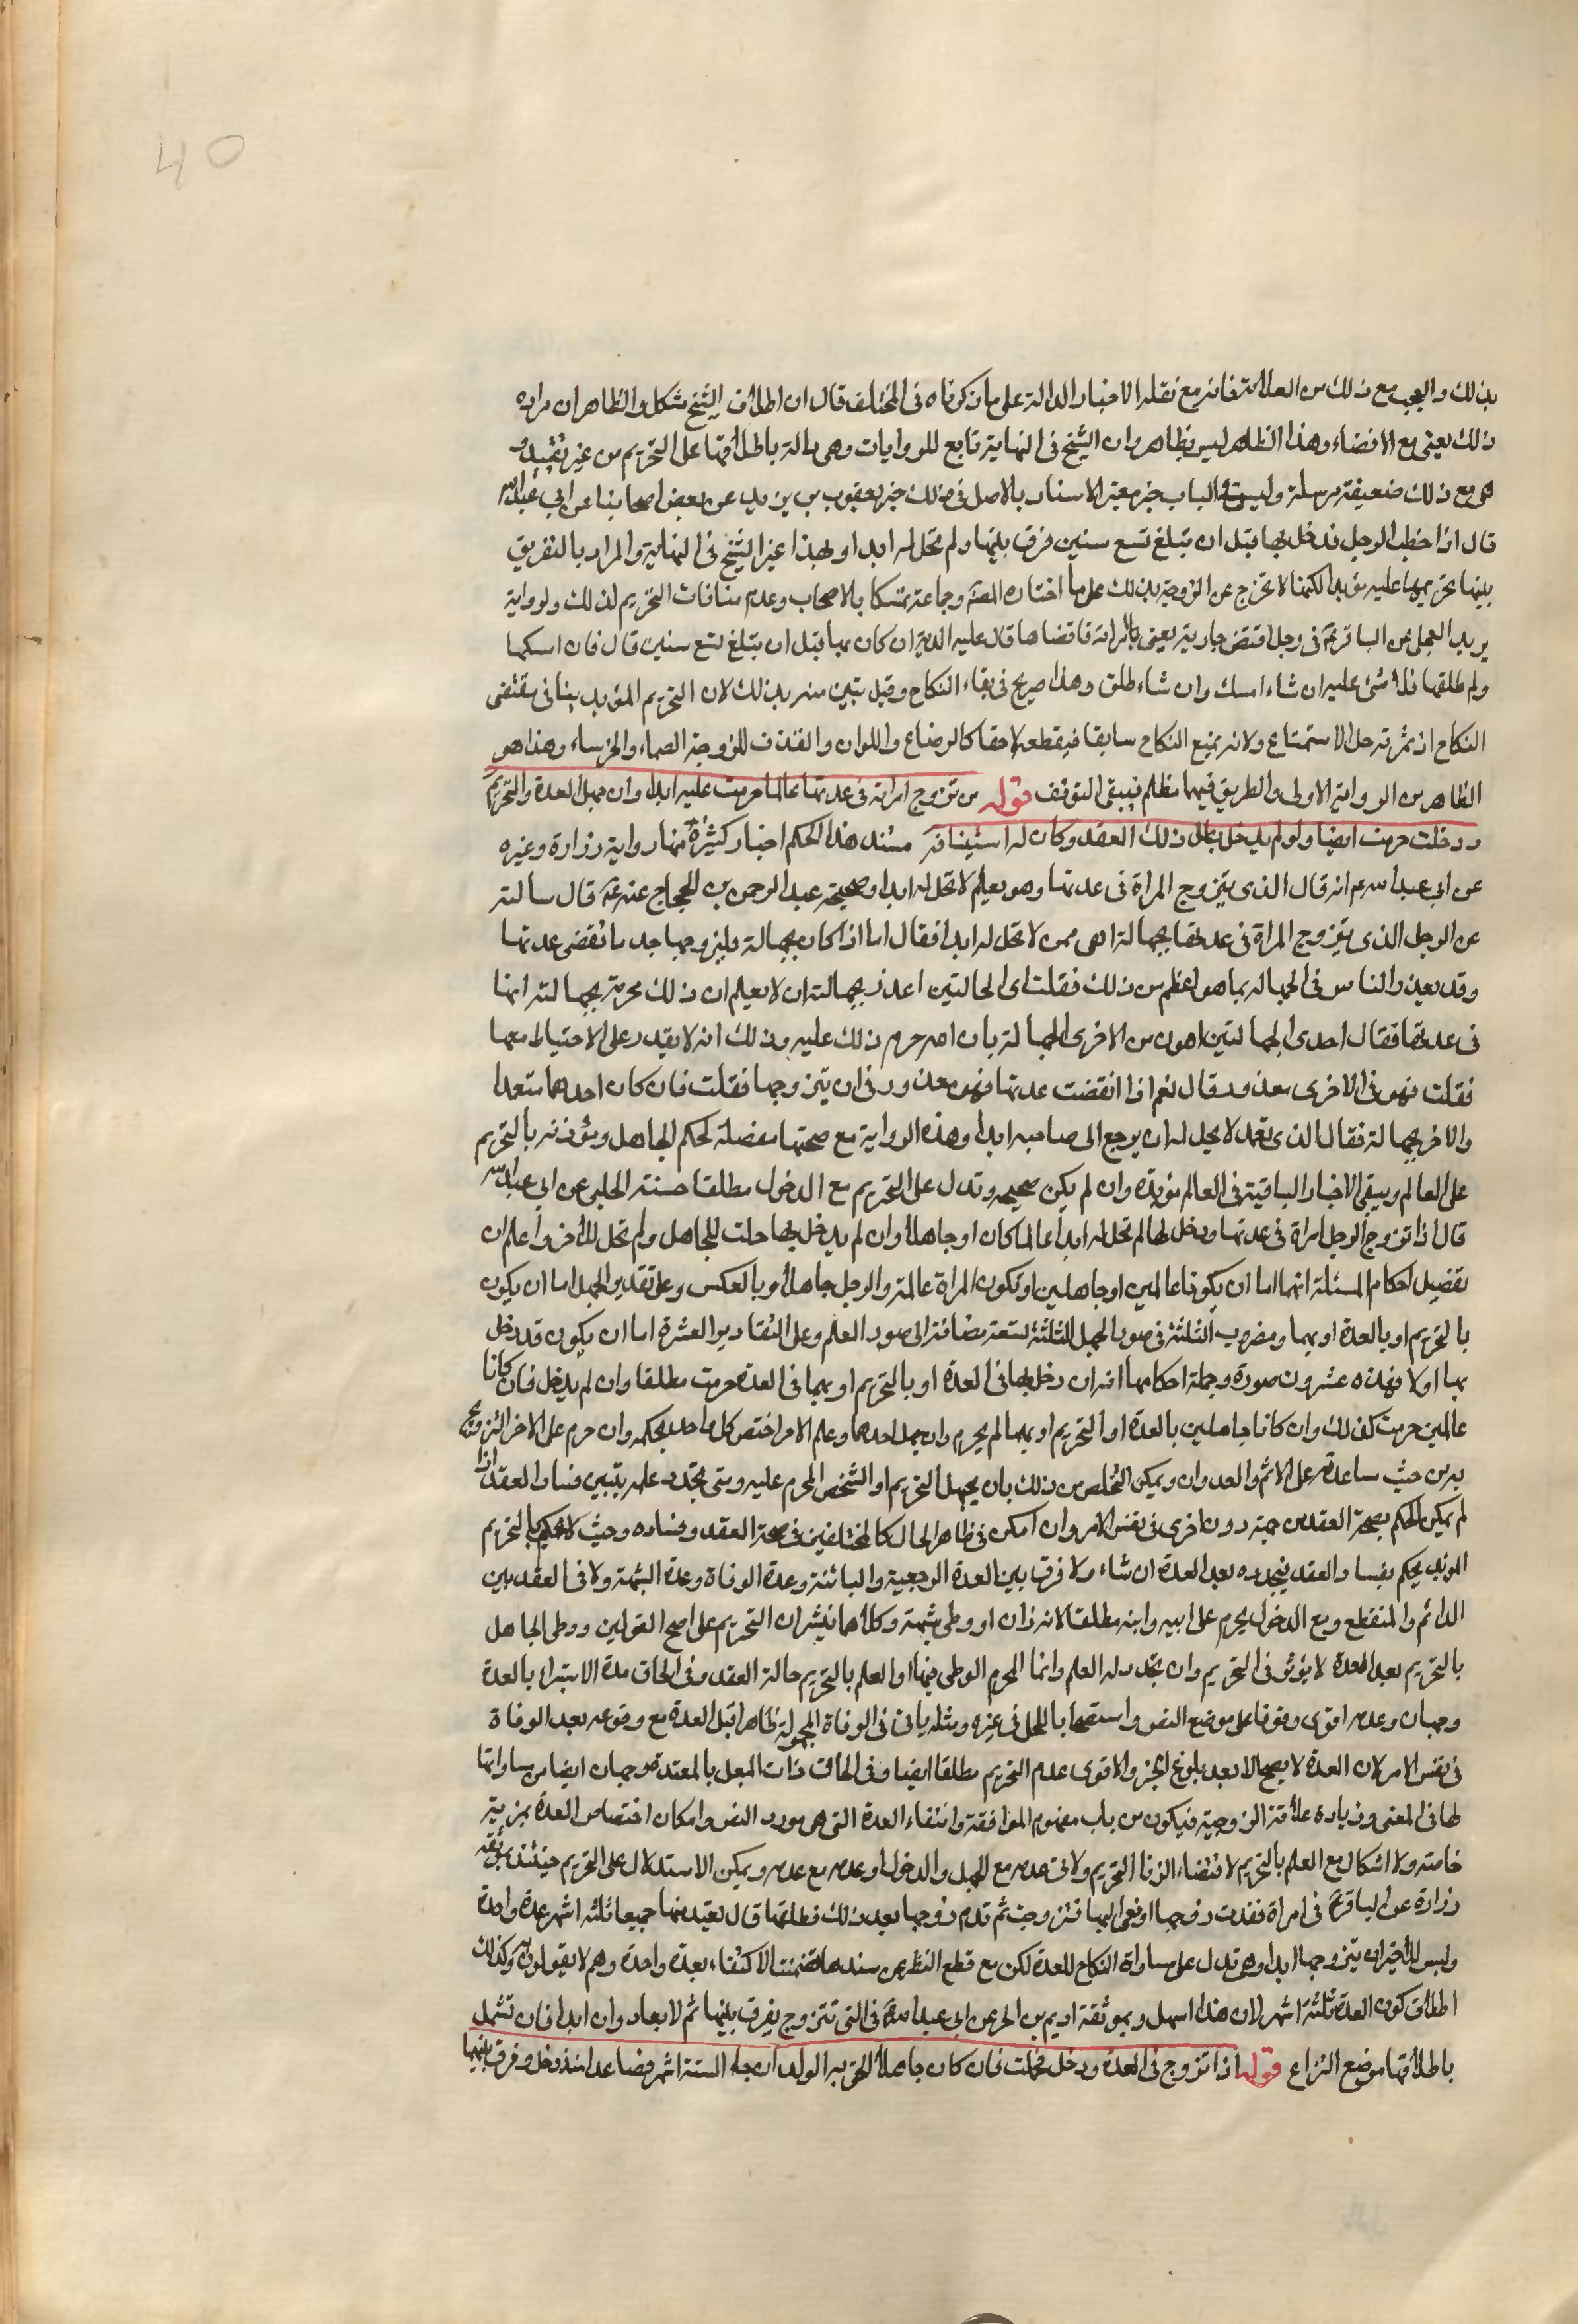 40
بذلك والعجب مع ذلك من العلامة فانه مع نقله الاخبار الدالة على ما ذكرناه فى المختلف قال ان اطلاق الشيخ مشكل والظاهر ان مراده
ذلك يعنى مع الافضاء وهذا الظاهر ليس بظاهر وان الشيخ فى النهاية تابع للروايات وهى دالة باطلاقها على التحريم من غير تقييد و
هى مع ذلك ضعيفة مرسلة وليس فى الباب خبر معتبر الاسناد بالاصل فى ذلك خبر يعقوب بن يزيد عن بعض اصحابنا عن ابى عبدالله
قال اذا خطب الرجل فدخل بها قبل ان تبلغ تسع سنين فرق بينهما ولم تحل له ابدا وبهذا عبر الشيخ فى النهاية والمراد بالتفريق
بينهما تحريمها عليه مؤبدا لكنها لا تخرج عن الزوجية بذلك على ما اختاره المصنف وجماعة تمسكا بالاصحاب وعدم منافات التحريم لذلك ولرواية
بريد العجلى عن الباقر ع فى رجل افتض جارية يعنى امراته فافضاها قال عليه الدية ان كان بها قبل ان تبلغ تسع سنين قال فان امسكها
ولم طلقها فلا شئ عليه ان شاء امسك وان شاء طلق وهذا صريح فى بقاء النكاح وقيل تبين منه بذلك لان التحريم المؤبد ينافى مقتضى
النكاح اذ ثمرته حل الاستمتاع ولانه يمنع النكاح سابقا فيقطعه لاحقا كالرضاع واللعان والقذف للزوجة الصماء والخرساء وهذا هو
الظاهر من الرواية الاولى والطريق فيهما مظلم فيبقى التوقف قوله من تزوج امراة فى عدتها عالما حرمت عليه ابدا وان جهل العدة والتحريم
ودخلت حرمت ايضا ولو لم يدخل بطل ذلك العقد وكان له استينافه مستند هذا الحكم اخبار كثيرة منها رواية زرارة وغيره
عن ابى عبدالله ع انه قال الذى يتزوج المراة فى عدتها وهو يعلم لا تحل له ابدا وصحيحة عبد الرحمن بن الحجاج عنه ع قال سالته
عن الرجل الذى يتزوج المراة فى عدتها بجهالة اهى ممن لا تحل له ابدا فقال اما اذا كان بجهالة فليزوجها بعد ما تنقضى عدتها
وقد يعذر الناس فى الجهالة بما هو اعظم من ذلك فقلت اى الحالتين اعذر بجهالته ان لا يعلم ان ذلك محرمة بجهالته انها
فى عدتها فقال احدى الجهالتين اهون من الاخرى الجهالة بان الله حرم ذلك عليه وذلك انه لا يقدر على الاحتياط معها
فقلت فهو فى الاخرى معذور قال نعم اذا انقضت عدتها فهو معذور فى ان يتزوجها فقلت فان كان احدهما متعمدا
والاخر بجهالة فقال الذى تعمد لا يحل له ان يرجع الى صاحبه ابدا وهذه الرواية مع صحتها مفصلة لحكم الجاهل ومؤذنه بالتحريم
على العالم ويبقى الاخبار الباقية فى العالم مؤيدة وان لم يكن صحيحة وتدل على التحريم مع الدخول مطلقا حسنة الحلبى عن ابى عبدالله
قال اذا تزوج الرجل امراة فى عدتها ودخل بها لم تحل له ابدا عالما كان او جاهلا وان لم يدخل بها حلت للجاهل ولم تحل للاخر واعلم ان
تفصيل احكام المسئلة انهما اما ان يكونا عالمين او جاهلين او تكون المراة عالمة والرجل جاهلا او بالعكس وعلى تقدير الجهل اما ان يكون
بالتحريم او بالعدة او بهما ومضروب الثلثة فى صور الجهل الثلثة تسعة مضافة الى صور العلم وعلى التقادير العشرة اما ان يكون قد دخل
بها اولا فهذه عشرون صورة وجملة احكامها انه ان دخل بها فى العدة او بالتحريم او بهما فى العدة حرمت مطلقا وان لم يدخل فان كانا
عالمين حرمت كذلك وان كانا جاهلين بالعدة او التحريم او بهما لم يحرم وان جهل احدهما وعلم الامر اختص كل واحد بحكمه وان حرم على الاخر التزويج
به من حيث مساعدته على الاثم والعدوان ويمكن التخلص من ذلك بان يجهل التحريم او الشخص المحرم عليه ومتى تجدد علمه تبين فساد العقد اذ
لم يمكن الحكم بصحة العقد من جهة دون اخرى فى نفس الامر وان امكن فى ظاهر الحال كالمختلفين فى صحة العقد وفساده وحيث لا يحكم بالتحريم
المؤبد يحكم بفساد العقد فيجدده بعد العدة ان شاء ولا فرق بين العدة الرجعية والبائنة وعدة الوفاة وعدة الشبهة ولا فى العقد بين
الدائم والمنقطع ومع الدخول يحرم على ابيه وابنه مطلقا لانه زان او وطى بشبهة وكلاهما ينشران التحريم على اصح القولين ووطى الجاهل
بالتحريم بعد العدة لا يؤثر فى التحريم وان تجدد له العلم وانما المحرم الوطى فيها او العلم بالتحريم حالة العقد وفى الحاق مدة الاستبراء بالعدة
وجهان وعدمه اقوى وقوفا على موضع النص واستصحابا للحل فى غيره ومثله ياتى فى الوفاة المجهولة ظاهرا قبل العدة مع وقوعه بعد الوفاة
فى نفس الامر لان العدة لا يصح الا بعد بلوغ الخبر والاقوى عدم التحريم مطلقا ايضا وفى الحاق ذات البعل بالمعتدة وجهان ايضا من مساواتها
لها فى المعنى وزيادة علاقة الزوجية فيكون من باب مفهوم الموافقة وانتفاء العدة التى هى مورد النص وامكان اختصاص العدة بمزية
خاصة ولا اشكال مع العلم بالتحريم لاقتضاء الزنا التحريم ولا فى عدمه مع الجهل والدخول او عدمه مع عدمه ويمكن الاستدلال على التحريم حينئذ بموثقة
زرارة عن الباقر ع فى امراة فقدت زوجها او نعى اليها فتزوجت ثم قدم زوجها بعد ذلك فطلقها قال تعتد منهما جميعا ثلثة اشهر عدة واحدة
وليس للاخر ان يتزوجها ابدا وهى تدل على مساواة النكاح للعدة لكن مع قطع النظر عن سندها تضمنت الاكتفاء بعدة واحدة وهم لا يقولون به وكذلك
اطلاق كون العدة ثلثة اشهر لان هذا اسهل وبموثقة اديم بن الحر عن ابى عبدالله ع فى التى تتزوج يفرق بينهما ثم لا يعاودان ابدا فان تشمل
باطلاقها موضع النزاع قوله اذا تزوج فى العدة ودخل فحملت فان كان جاهلا لحق به الولد ان جاء لستة اشهر فصاعدا منذ دخل وفرق بينهما